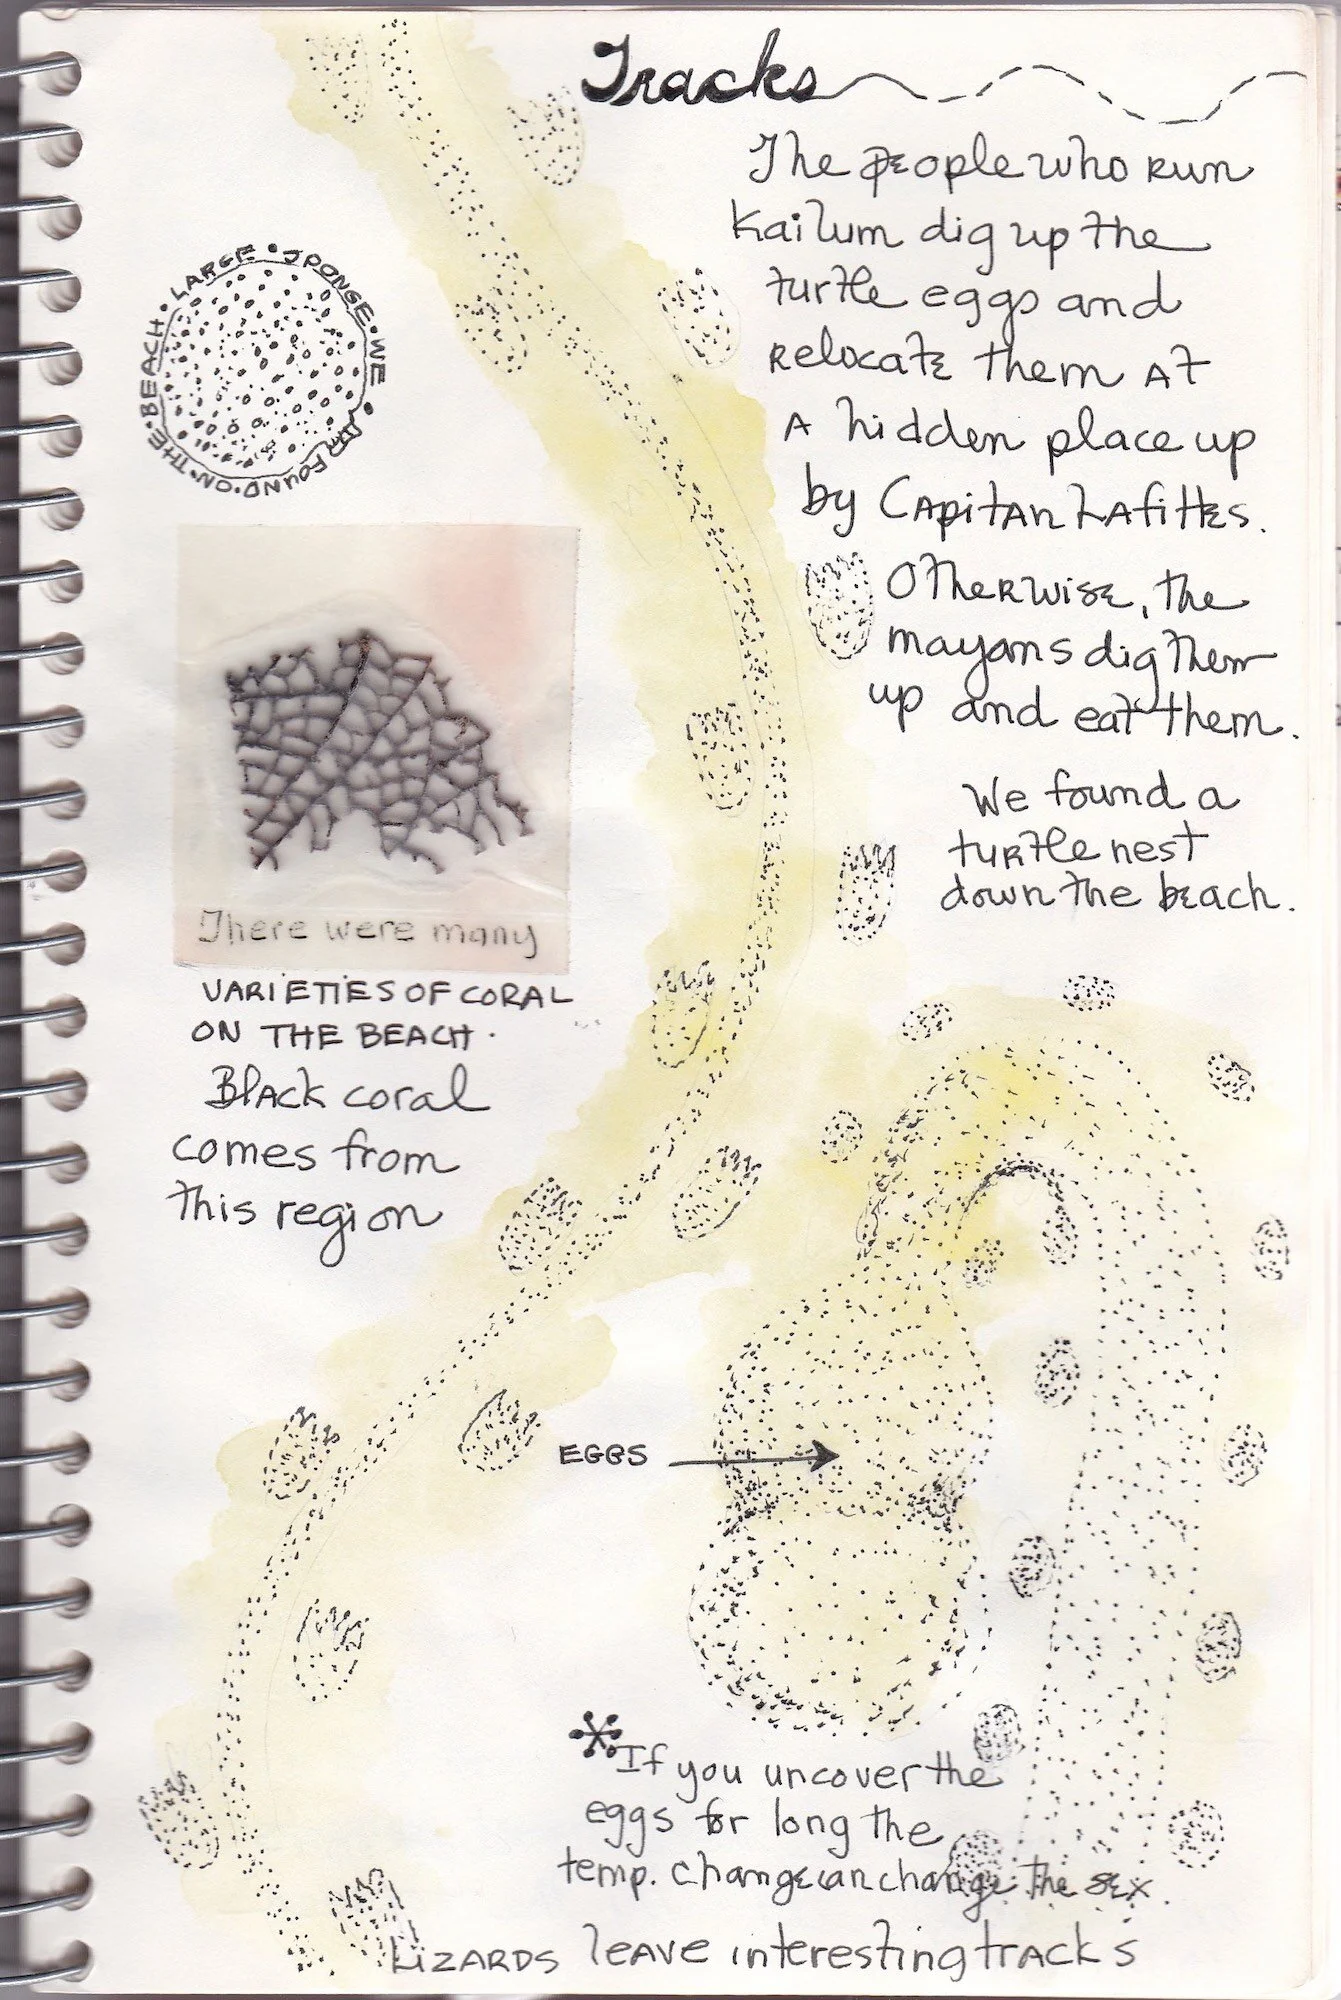 Tracks
The people who run
Kailum dig up the
turtle eggs and
relocate them at
A hidden place up
by Capitan Lafittes.
Otherwise, the
mayans dig them
up and eat them.
We found a
turtle nest
down the beach.
LARGE • SPONGE • WE • FOUND • ON • THE • BEACH •
There were many
VARIETIES OF CORAL
ON THE BEACH.
Black coral
comes from
this region
EGGS
*If you uncover the
eggs for long the
temp. change can change the sex.
Lizards leave interesting tracks